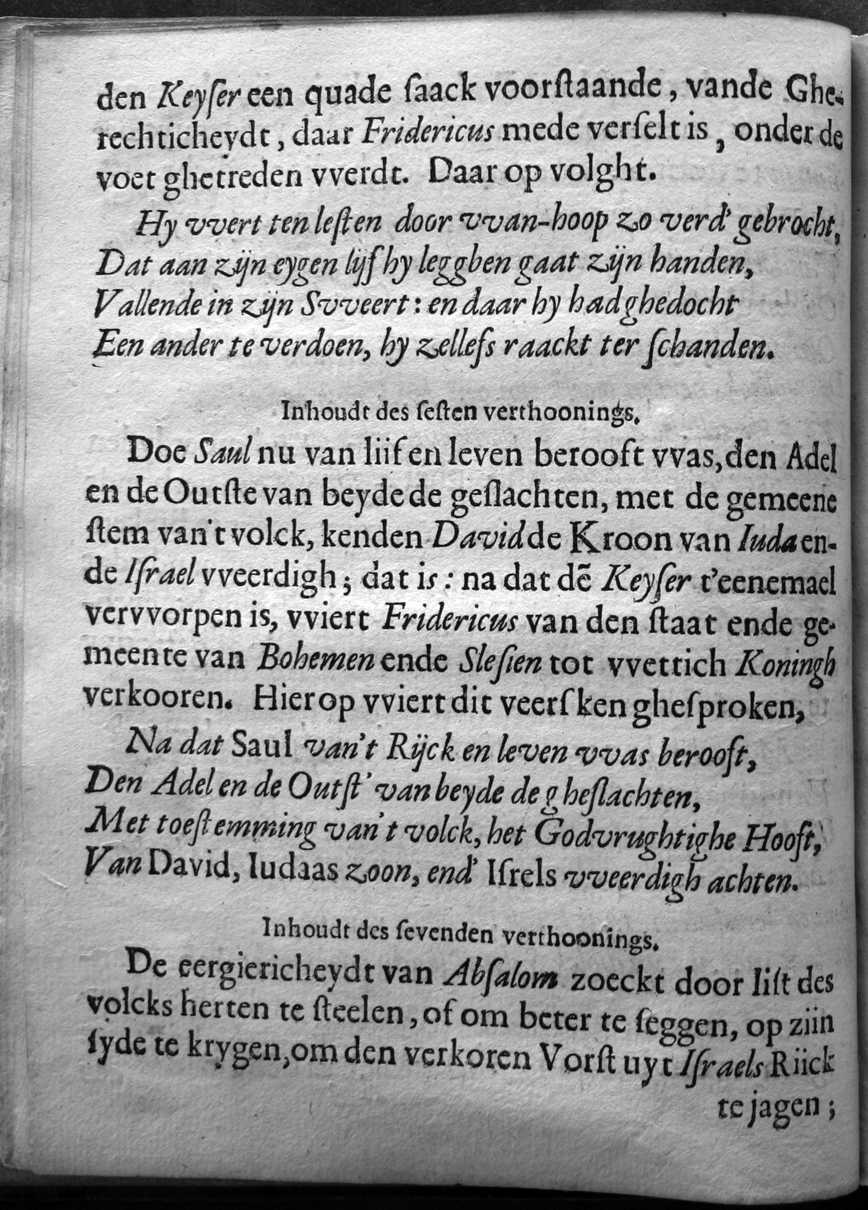 den Keyſer een quade ſaack voorſtaande, vande Ghe-
rechticheydt, daar Fridericus mede verſelt is, onder de
voet ghetreden vverdt. Daar op volght.
Hy vvert ten leſten door vvan-hoop zo verd' gebrocht,
Dat aan zijn eygen lijf hy legghen gaat zijn handen,
Vallende in zijn Svveert: en daar hy had ghedocht
Een ander te verdoen, hy zellefs raackt ter ſchanden.
Inhoudt des ſeſten verthoonings.
Doe Saul nu van liif en leven berooft vvas, den Adel
en de Outſte van beyde de geſlachten, met de gemeene
ſtem van't volck, kenden David de Kroon van Iuda en-
de Iſrael vveerdigh; dat is: na dat dẽ Keyſer t'eenemael
vervvorpen is, vviert Fridericus van den ſtaat ende ge-
meente van Bohemen ende Sleſien tot vvettich Koningh
verkooren. Hier op vviert dit veerſken gheſproken,
Na dat Saul van't Rijck en leven vvas berooft,
Den Adel en de Outſt' van beyde de gheſlachten,
Met toeſtemming van't volck, het Godvrughtighe Hooft,
Van David, Iudaas zoon, end' Iſrels vveerdigh achten.
Inhoudt des ſevenden verthoonings.
De eergiericheydt van Abſalom zoeckt door liſt des
volcks herten te ſteelen, of om beter te ſeggen, op ziin
ſyde te krygen, om den verkoren Vorſt uyt Iſraels Riick
te jagen;